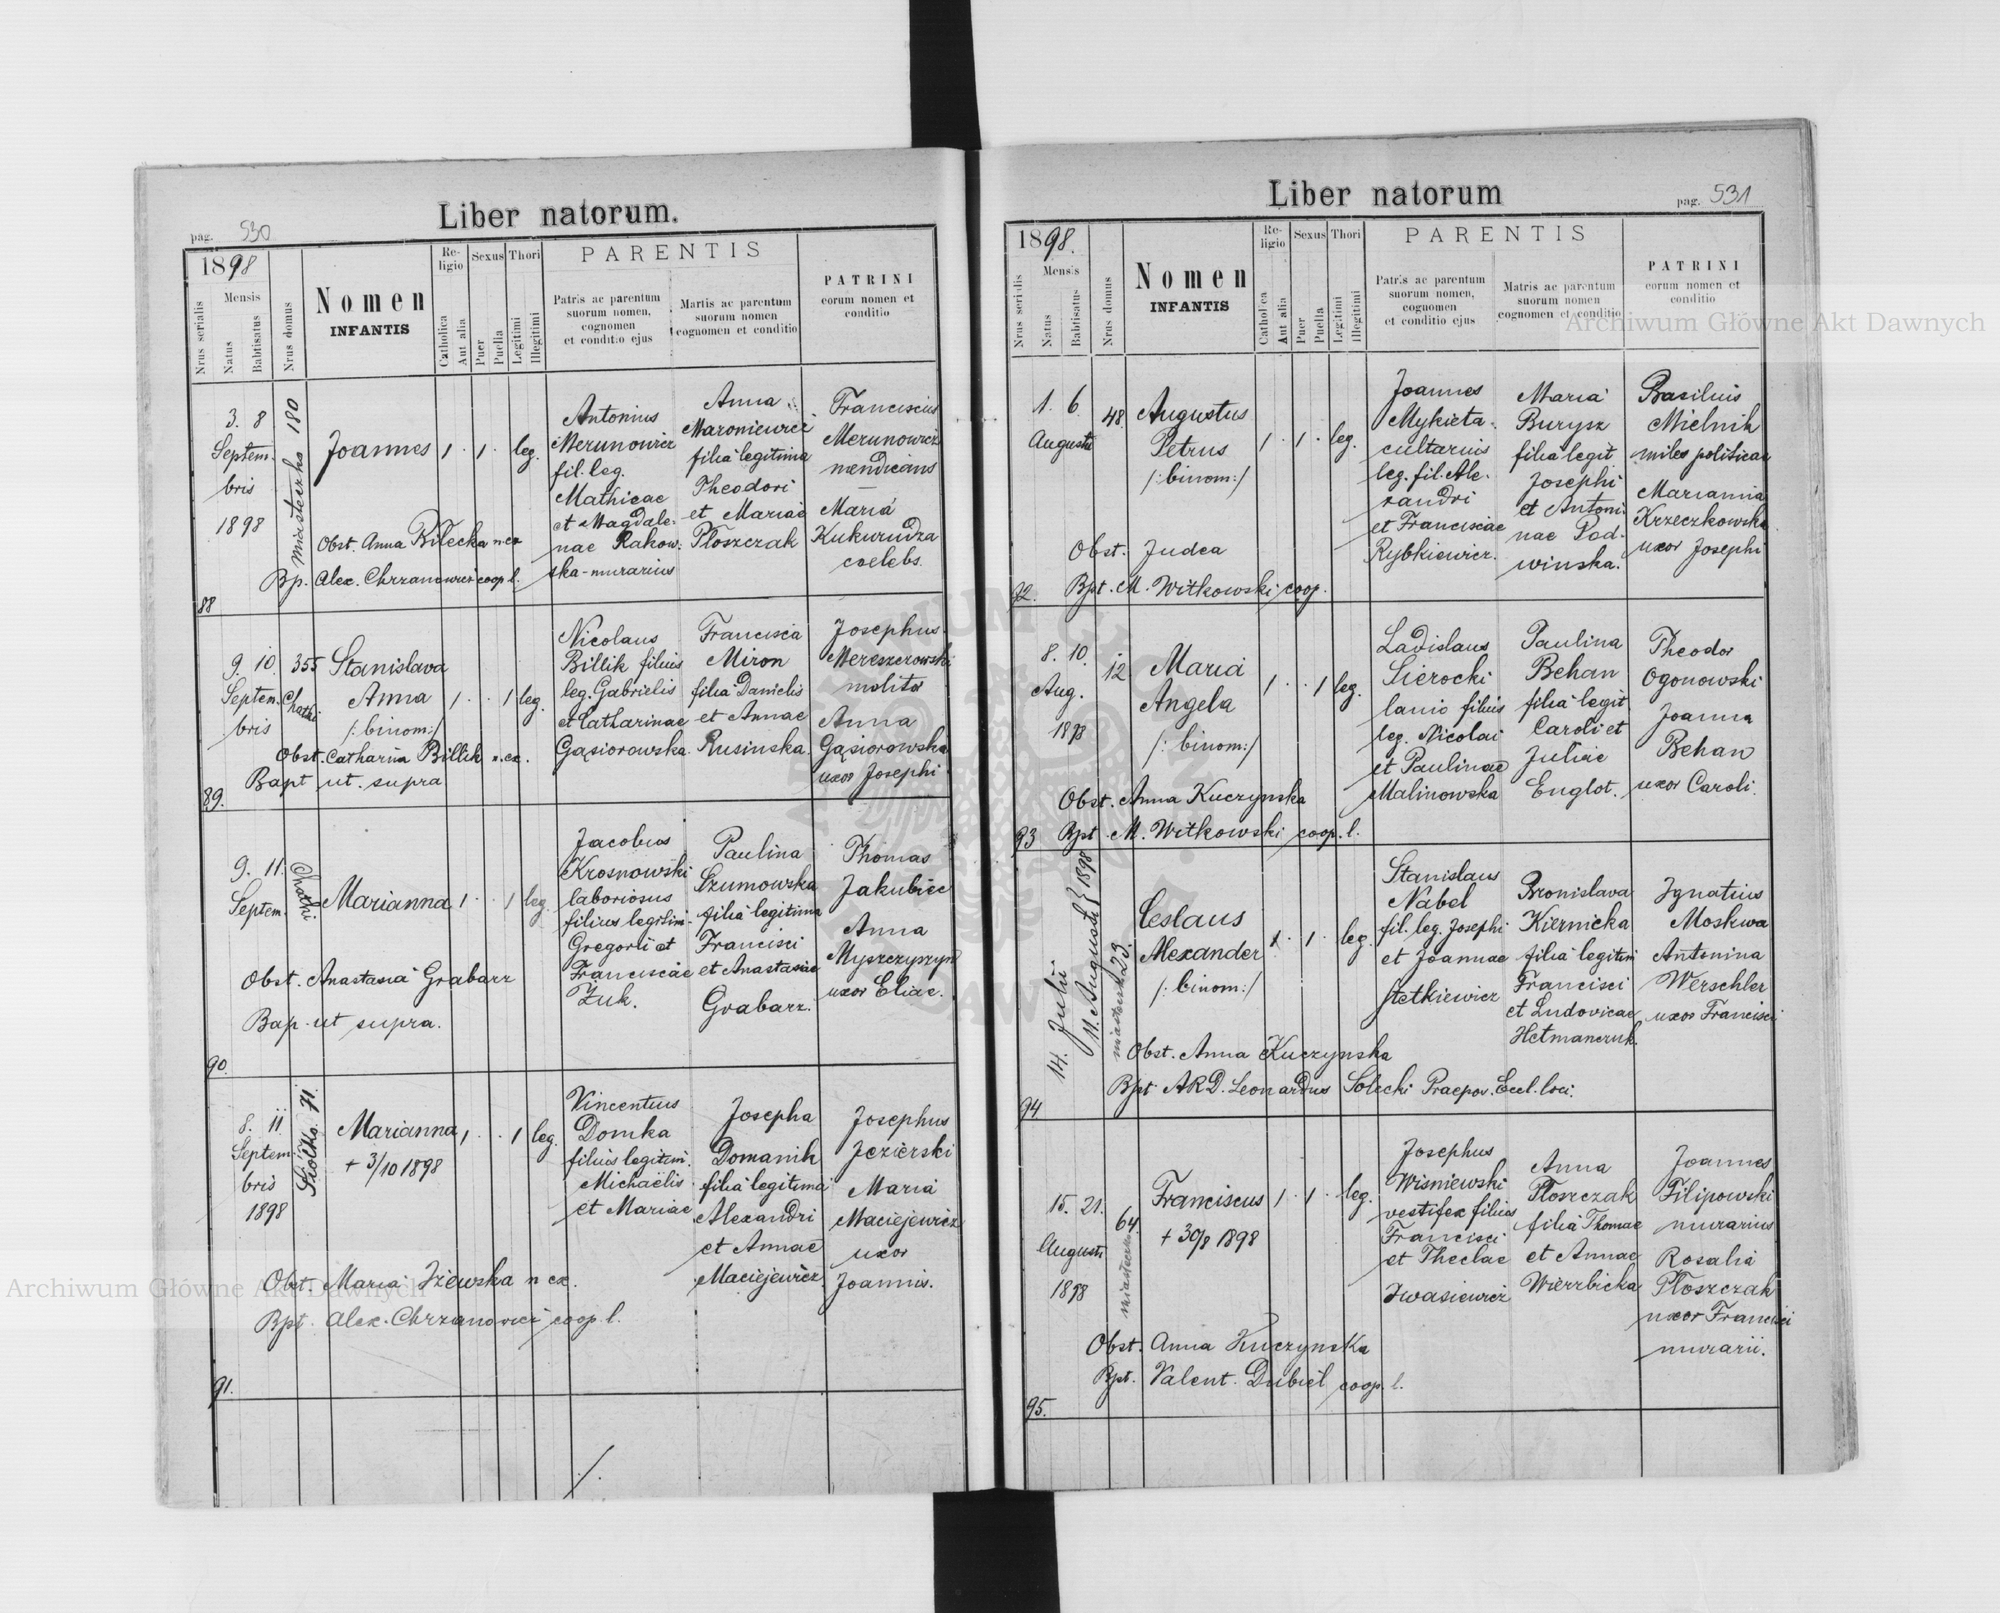 Liber natorum.
pag. 530
1898
Nrus serialis
Mensis
Natus
Babtisatus
Nrus domus
Nomen
INFANTIS
Religio
Catholica
Aut alia
Sexus
Puer
Puella
Thori
Legitimi
Illegitimi
PARENTIS
Patris ac parentum
suorum nomen,
cognomen
et conditio ejus
Martis ac parentum
suorum nomen
cognomen et conditio
PATRINI
eorum nomen et
conditio
3. 8
Septem-
bris
1898
miasteczko 180
Joannes
1 · 1 · leg.
Antonius
Merunowicz
fil. leg.
Mathieae
et Magdale-
nae Rakow-
ska - murarius
Anna
Maroniewicz
filia legitima
Theodori
et Mariae
Ploszczak
Franciscus
Merunowicz
mendicans
Maria
Kukurudza
coelebs.
Obst. Anna Bilecka n. ex
Bp. Alex. Chrzanowicz coop l.
88
9. 10.
Septem-
bris
355
Chatki
Stanislava
Anna
/: binom:/
1 · · 1 leg.
Nicolaus
Billik filius
leg. Gabrielis
et Catharinae
Gąsiorowska.
Francisca
Miron
filia Danielis
et Annae
Rusinska.
Josephus
Mereszczowski
molitor
Anna
Gąsiorowska
uxor Josephi
Obst. Catharina Billik n. ex.
Bapt ut. supra
89.
9. 11.
Septem.
Chatki.
Marianna
1 · · 1 leg.
Jacobus
Krosnowski
laboriosus
filius legitim-
Gregorii et
Franciscae
Żuk.
Paulina
Szumowska
filia legitima
Francisci
et Anastasiae
Grabarz.
Thomas
Jakubiec
Anna
Myszczyszyn
uxor Eliae.
Obst. Anastasia Grabarz
Bap. ut supra.
90.
8. 11
Septem-
bris
1898
Siółko. 71.
Marianna
+ 3/10 1898
1 · · 1 leg.
Vincentius
Domka
filius legitim.
Michaëlis
et Mariae
Josepha
Domanik
filia legitima
Alexandri
et Annae
Maciejewicz.
Josephus
Jezierski
Maria
Maciejewicz
uxor
Joannis.
Obst. Maria Iżewska n ex.
Bpt. Alex. Chrzanovicz coop. l.
91.
Liber natorum
pag. 531
1898.
Nrus serialis
Mensis
Natus
Babtisatus
Nrus domus
Nomen
INFANTIS
Religio
Catholica
Aut alia
Sexus
Puer
Puella
Thori
Legitimi
Illegitimi
PARENTIS
Patris ac parentum
suorum nomen,
cognomen
et conditio ejus
Matris ac parentum
suorum nomen
cognomen et conditio
PATRINI
eorum nomen et
conditio
1. 6.
Augusti
48.
Augustus
Petrus
/: binom:/
1 · 1 · leg.
Joannes
Mykieta
cultarius
leg. fil. Ale-
xandri
et Franciscae
Rybkiewicz.
Maria
Burysz
filia legit
Josephi
et Antoni-
nae Pod-
winska.
Basilius
Mielnik
miles politicae
Marianna
Krzeczkowska
uxor Josephi
Obst. Judea
Bpt. M. Witkowski coop.
92.
8. 10.
Aug.
1898
12
Maria
Angela
/: binom:/
1 · · 1 leg.
Ladislaus
Sierocki
lanio filius
leg. Nicolai
et Paulinae
Malinowska
Paulina
Behan
filia legit
Caroli et
Juliae
Englot.
Theodor
Ogonowski
Joanna
Behan
uxor Caroli.
Obst. Anna Kuczynska
Bpt. M. Witkowski coop. l.
93
14. Julii
11. Augusti } 1898
miasteczk. 23.
Ceslaus
Alexander
/: binom:/
1 · 1 · leg.
Stanislaus
Nabel
fil. leg. Josephi
et Joannae
Stetkiewicz
Bronislava
Kiernicka
filia legitim
Francisci
et Ludovicae
Hetmanczuk.
Ignatius
Moskwa
Antonina
Werschler
uxor Francisci
Obst. Anna Kuczynska
Bpt. ARD. Leonardus Solecki Praepos. Eccl. loci.
94
15. 21.
Augusti
1898
miasteczko 64.
Franciscus
+ 30/8 1898
1 · 1 · leg.
Josephus
Wisniewski
vestifex filius
Francisci
et Theclae
Iwasiewicz
Anna
Ploszczak
filia Thomae
et Annae
Wierzbicka
Joannes
Filipowski
murarius
Rosalia
Ploszczak
uxor Francisci
murarii.
Obst. Anna Kuczynska
Bpt. Valent. Dubiel coop. l.
95.
Archiwum Główne Akt Dawnych
Archiwum Główne Akt Dawnych